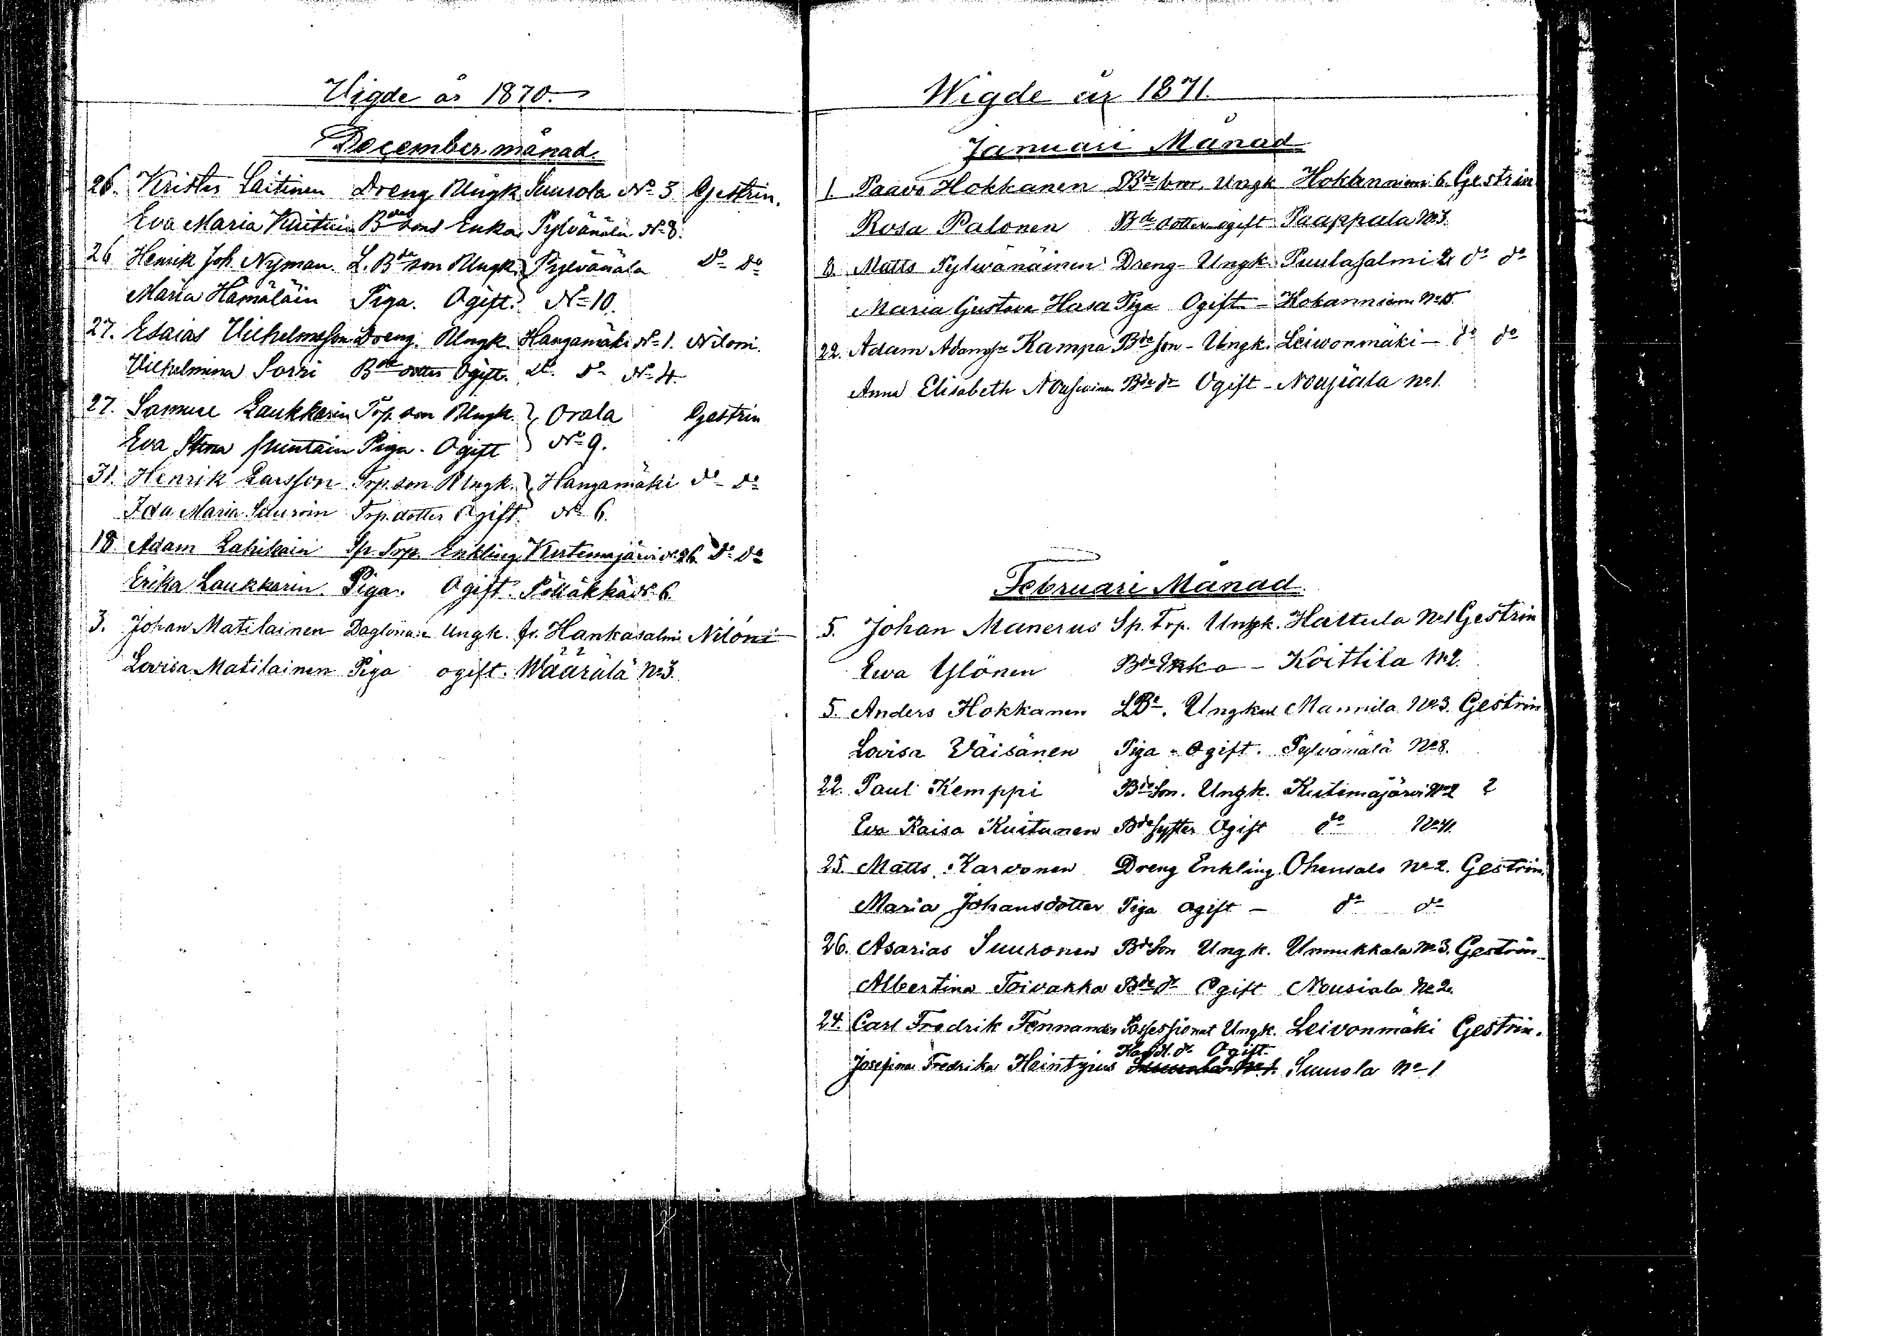 Vigde år 1870.
December månad.
26. Krister Laitinen Dreng Ungk. Suurola No 3 Gestrin.
Eva Maria Kuitun Bde sons Enka Pylvänälä No 8.
26 Henrik Joh. Nyman. L. Bde son Ungk. Pylvänälä do do
Maria Hämäläin Piga. Ogift. No 10.
27. Esaias Vilhelmsson Dreng. Ungk. Hangamäki No 1. Niloni.
Vilhelmina Sorri Bde dotter Ogift. do do No 4.
27. Samuel Laukkarin Trp. son Ungk. Orala Gestrin
Eva Stina Piga. Ogift No 9.
31. Henrik Larsson Trp. son Ungk. Hangamäki do do
Ida Maria Suuroin Trp. dotter Ogift. No 6.
18 Adam Lahikain Sp. Trp. Enkling Kutemajärvi No 26 do do
Erika Laukkarin Piga. Ogift. Pölläkkä No 6.
3. Johan Matilainen Daglönare Ungk. fr. Hankasalmi Nilóni
Lovisa Matilainen Piga ogift. Wäärälä No 3.
Wigde år 1871.
Januari Månad
1. Paavo Hokkanen Bde Ungk Hokkaniemi 6. Gestrin
Rosa Palonen Bde dotter ogift Paappala No 3.
8. Matts Pylwänäinen Dreng - Ungk. Puulasalmi 2 do do
Maria Gustava Hasa Piga Ogift - Hokanniemi No 5.
22. Adam Adamss. Kampa Bde son - Ungk. Leiwonmäki - do do
Anna Elisabeth Nousiainen Bde dr Ogift - Nousiala No 1.
Februari Månad.
5. Johan Manerus Sp. Trp. Ungk. Hattula No 1 Gestrin
Ewa Ylönen Bde Enka - Koittila No 2.
5. Anders Hokkanen LBe. Ungkarl Mannila No 3. Gestrin
Lovisa Väisänen Piga - Ogift. Pylvänälä No 8.
22. Paul Kemppi Bde Son. Ungk. Kutemajärvi No 2 ?
Eva Kaisa Kuitunen Bde syster Ogift do No 11.
25. Matts Karvonen Dreng Enkling. Ohensalo No 2. Gestrin.
Maria Johansdotter Piga ogift - do do
26. Asarias Suuronen Bde Son Ungk. Unnukkala No 3. Gestrin
Albertina Toivakka Bde dr Ogift Nousiala No 2.
24. Carl Fredrik Fennander Possessionat Ungk. Leivonmäki Gestrin.
Josefina Fredrika Heintzius Handl. dr Ogift. Suurola No 1